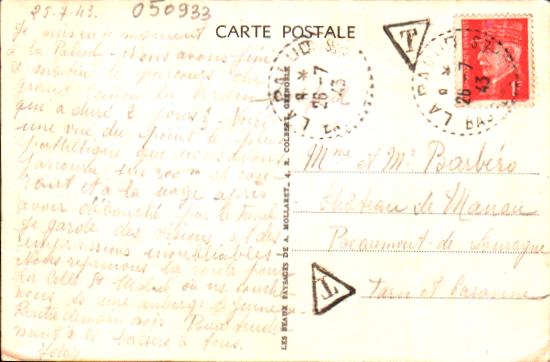 25-7.43.
050933
CARTE POSTALE
Je suis en ce moment
à la Palud. Nous avons fini
ce matin le parcours du
grand canon du Verdon
qui a duré 2 jours. Voici
une vue du point le plus
pathétique que nous avons
parcouru sur 200 m en cou
rant et à la nage après
avoir débouché par le tunnel
Je garde des visions et des
impressions inoubliables.
Nous reprenons la route pour
La Colle St Michel où ns couche
rons ds une auberge de jeunesse
Rentre demain soir.
baisers à tous.
LES BEAUX PAYSAGES DE A. MOLLARET_4, R. COLBERT, GRENOBLE
LA PALUD SUR
8 *
26-7
43
T
LA PALUD S
8 *
26-7
43
BAS
1F
Mme et Mr Barbéro
Château de Manau
Beaumont-de Lomagne
Tarn et Garonne
T